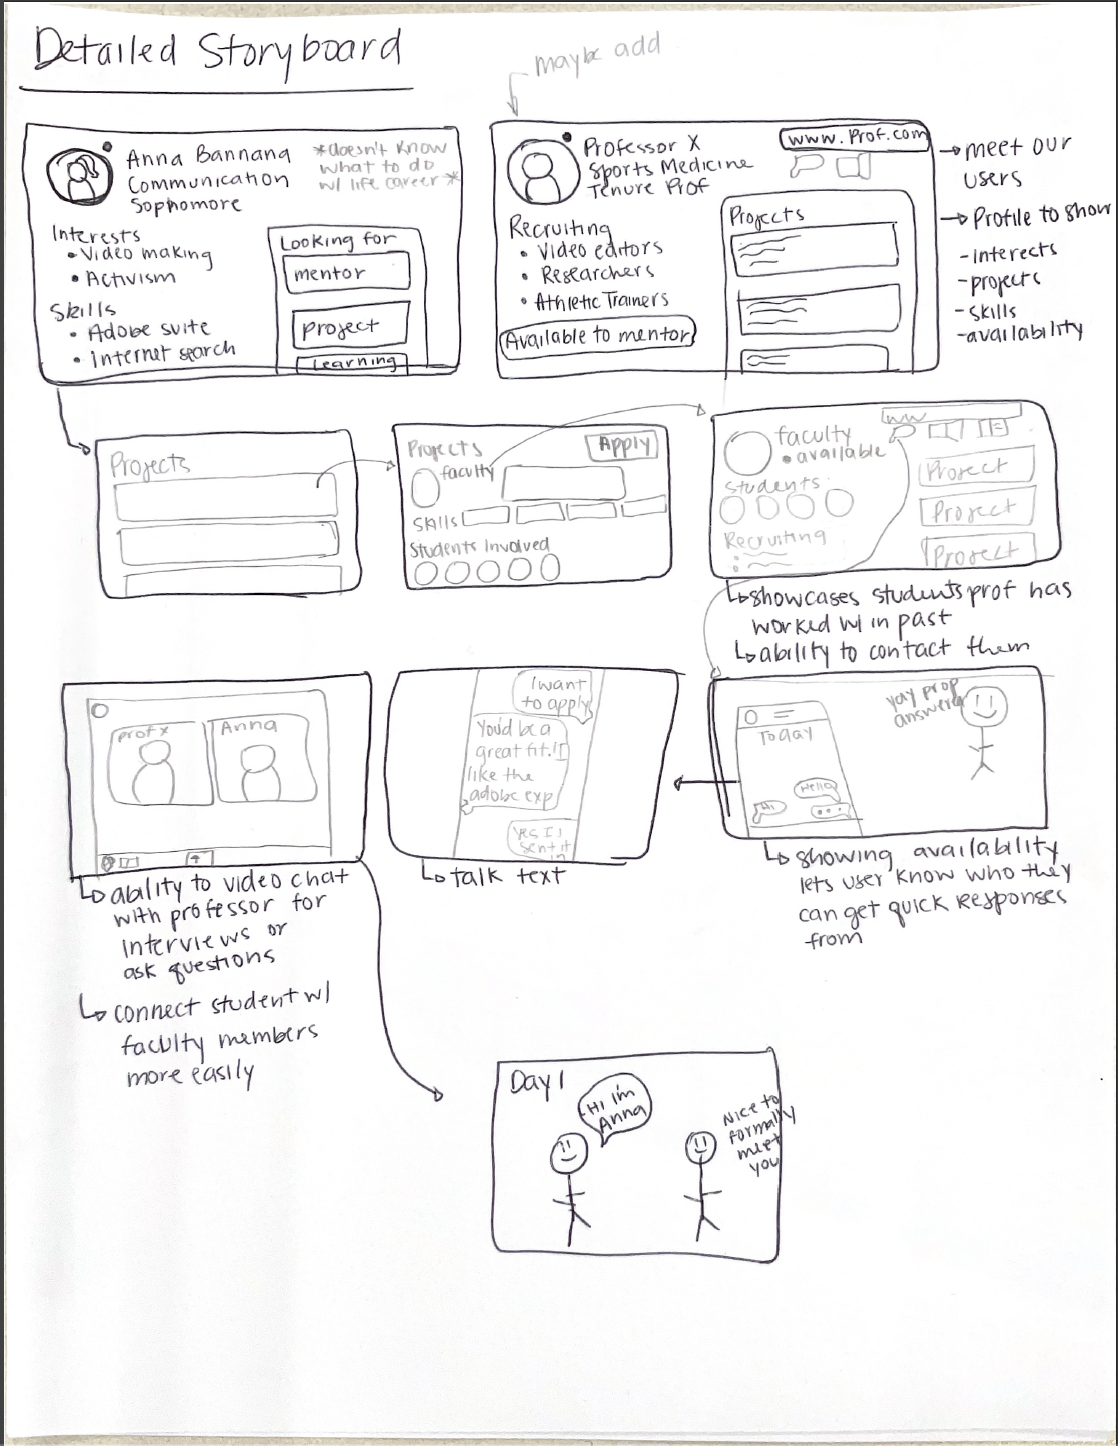 Detailed Storyboard
maybe add
Anna Bannana
Communication
Sophomore
*doesn't know
what to do
w/ life career *
Interests
• Video making
• Activism
Skills
• Adobe suite
• Internet search
Looking for
mentor
project
Learning
Professor X
Sports Medicine
Tenure Prof
www.Prof.com
Recruiting
• Video editors
• Researchers
• Athletic Trainers
Available to mentor
Projects
→ meet our
users
→ Profile to show
-interests
-projects
-skills
-availability
Projects
Projects
Apply
faculty
Skills
Students Involved
WW
faculty
• available
Students
Recruiting
Project
Project
Project
↳ showcases students prof has
worked w/ in past
↳ ability to contact them
prof x
Anna
↳ ability to video chat
with professor for
interviews or
ask questions
↳ connect student w/
faculty members
more easily
I want
to apply
You'd be a
great fit! I
like the
adobe exp
Yes I
sent it
in
↳ talk text
Today
Hello
Hi
...
yay prof
answered
↳ showing availability
lets user know who they
can get quick responses
from
Day 1
Hi I'm
Anna
Nice to
formally
meet
you